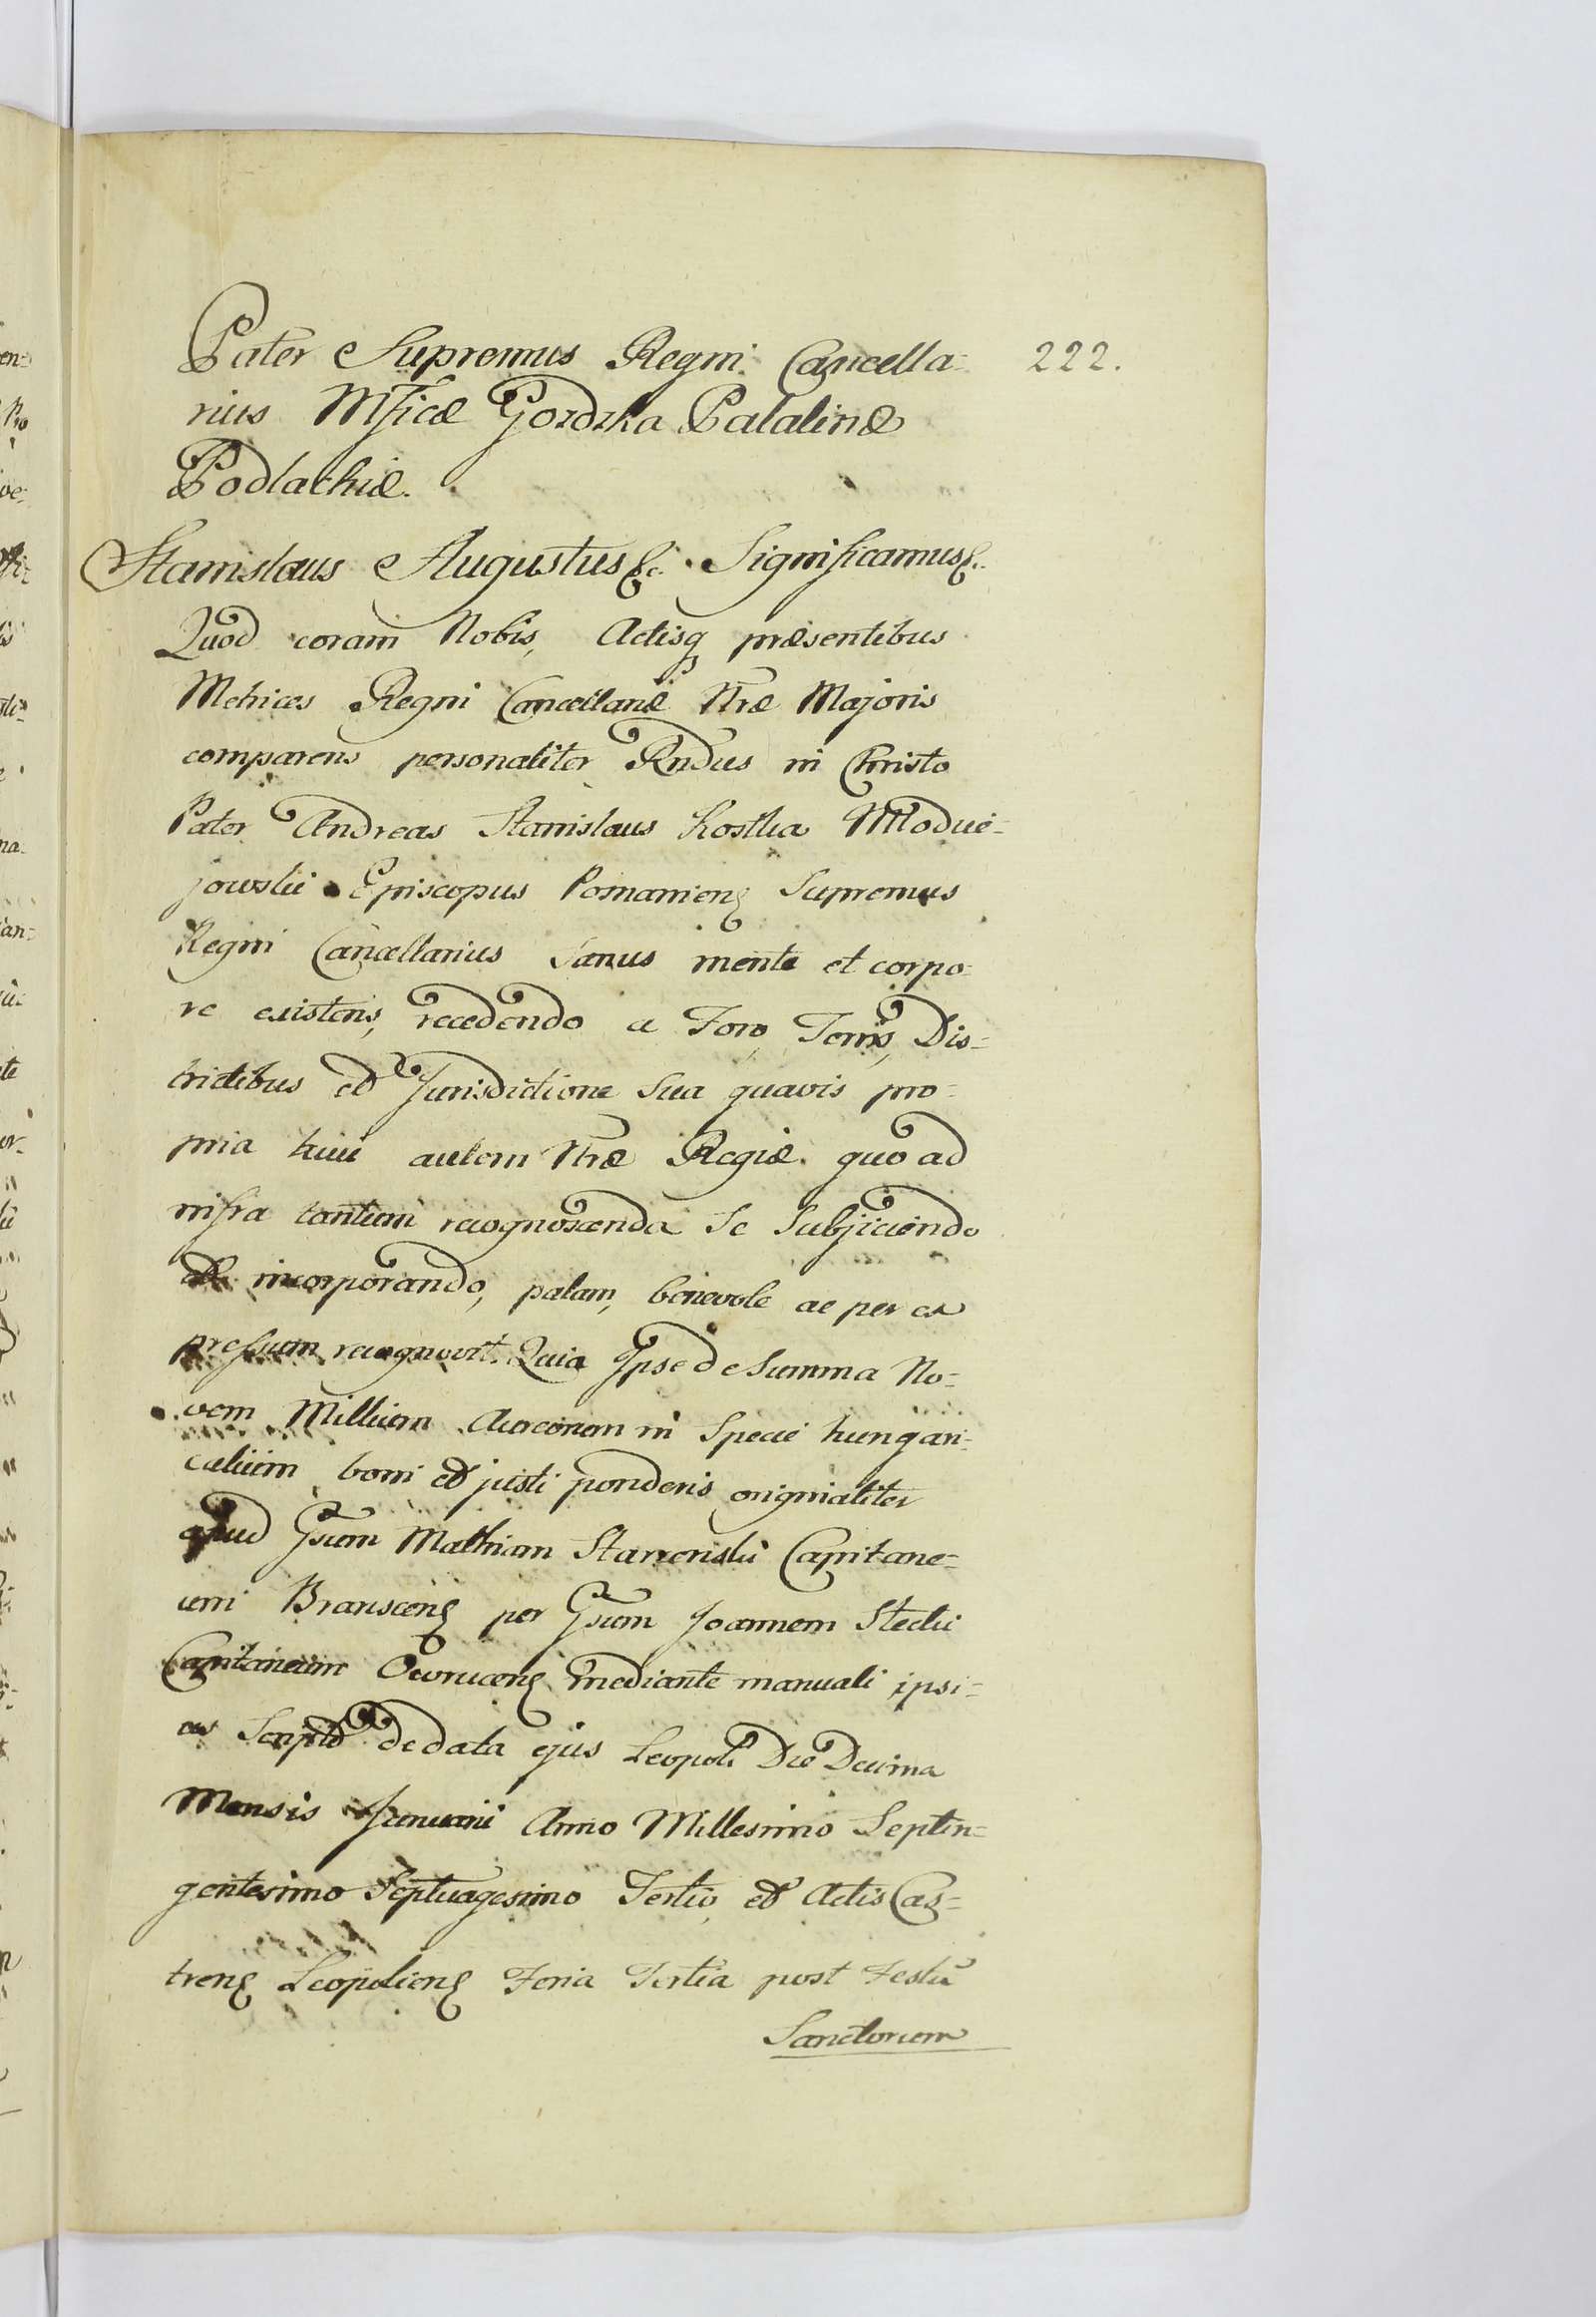 Pater Supremus Regni Cancella= 222.
rius Mficæ Gozdzka Palatinæ
Podlachiæ.
Stanislaus Augustus &c. Significamus &c.
Quod coram Nobis, Actisq præsentibus
Metrices Regni Cancellariæ Nræ Majoris
comparens personaliter Rndus in Christo
Pater Andreas Stanislaus Kostka Młodzie=
jowski Episcopus Posnaniens Supremus
Regni Cancellarius Sanus mente et corpo=
re existens, recedendo a Foro, Terris, Dis=
trictibus et Jurisdictione Sua quavis pro=
pria huic autem Nræ Regiæ quo ad
infra tantum recognoscenda Se Subjiciendo
et incorporando, palam, benevole ac per ex
pressum recognovit. Quia Ipse de Summa No=
vem Millium Aureorum in Specie hungari=
calium boni et justi ponderis originaliter
apud Gsum Mathiam Starzenski Capitane=
um Branscens per Gsum Joannem Stecki
Capitaneum Owrucens mediante manuali ipsi=
us Scripto de data ejus Leopoli Die Decima
Mensis Januarii Anno Millesimo Septin=
gentesimo Septuagesimo Tertio, et Actis Cas=
trens Leopoliens Feria Tertia post Festũ
Sanctorum